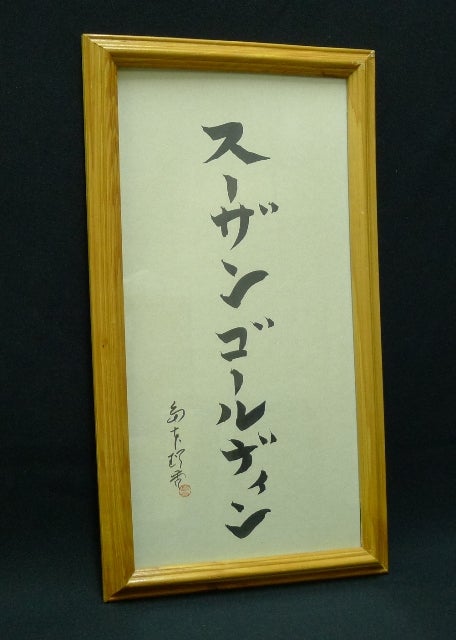 スーザンゴールディン